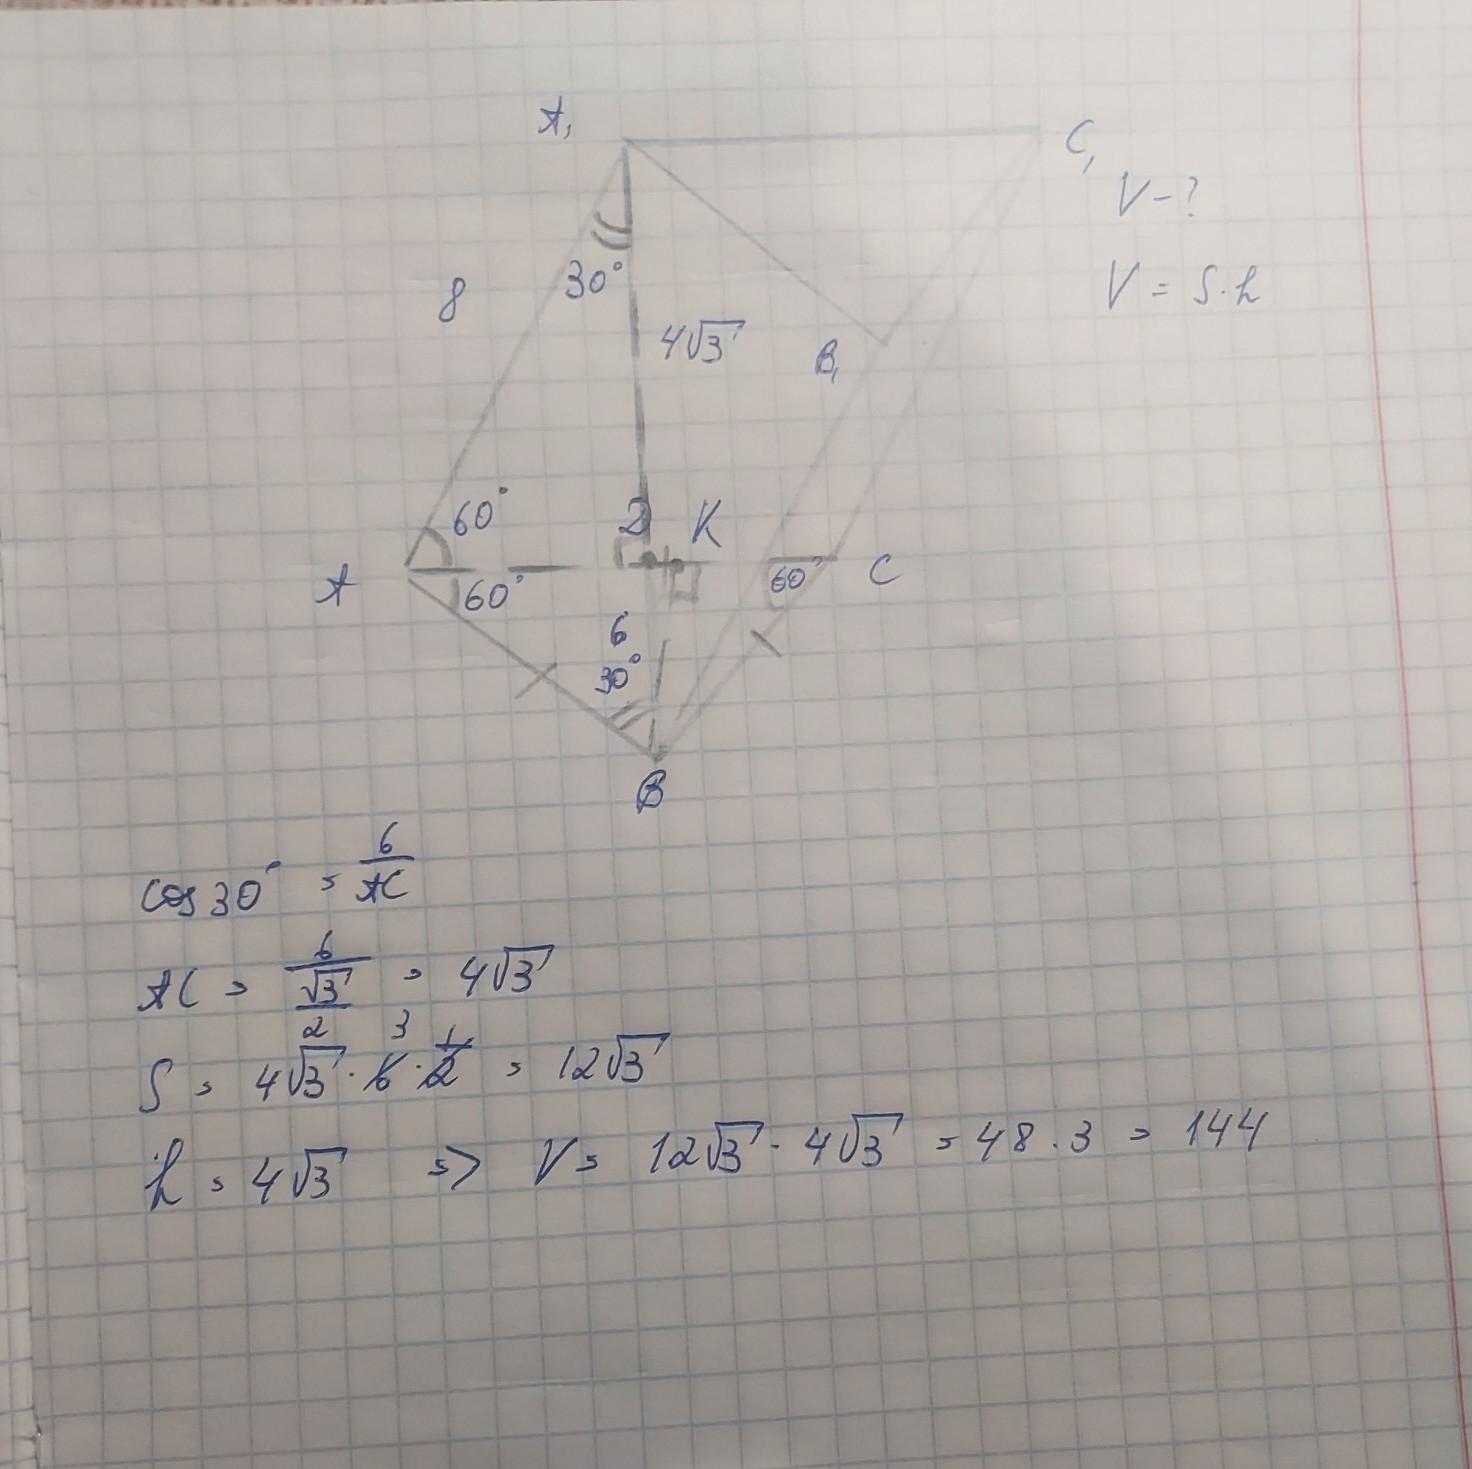 A₁
C₁
V - ?
8
30°
V = S · h
4√3
B₁
60°
D
K
A
60°
60°
C
6
30°
B
cos 30° = 6/AC
AC = 6/(√3/2) = 4√3
S = 4√3 · 6 · 1/2 = 12√3
3
h = 4√3 => V = 12√3 · 4√3 = 48 · 3 = 144